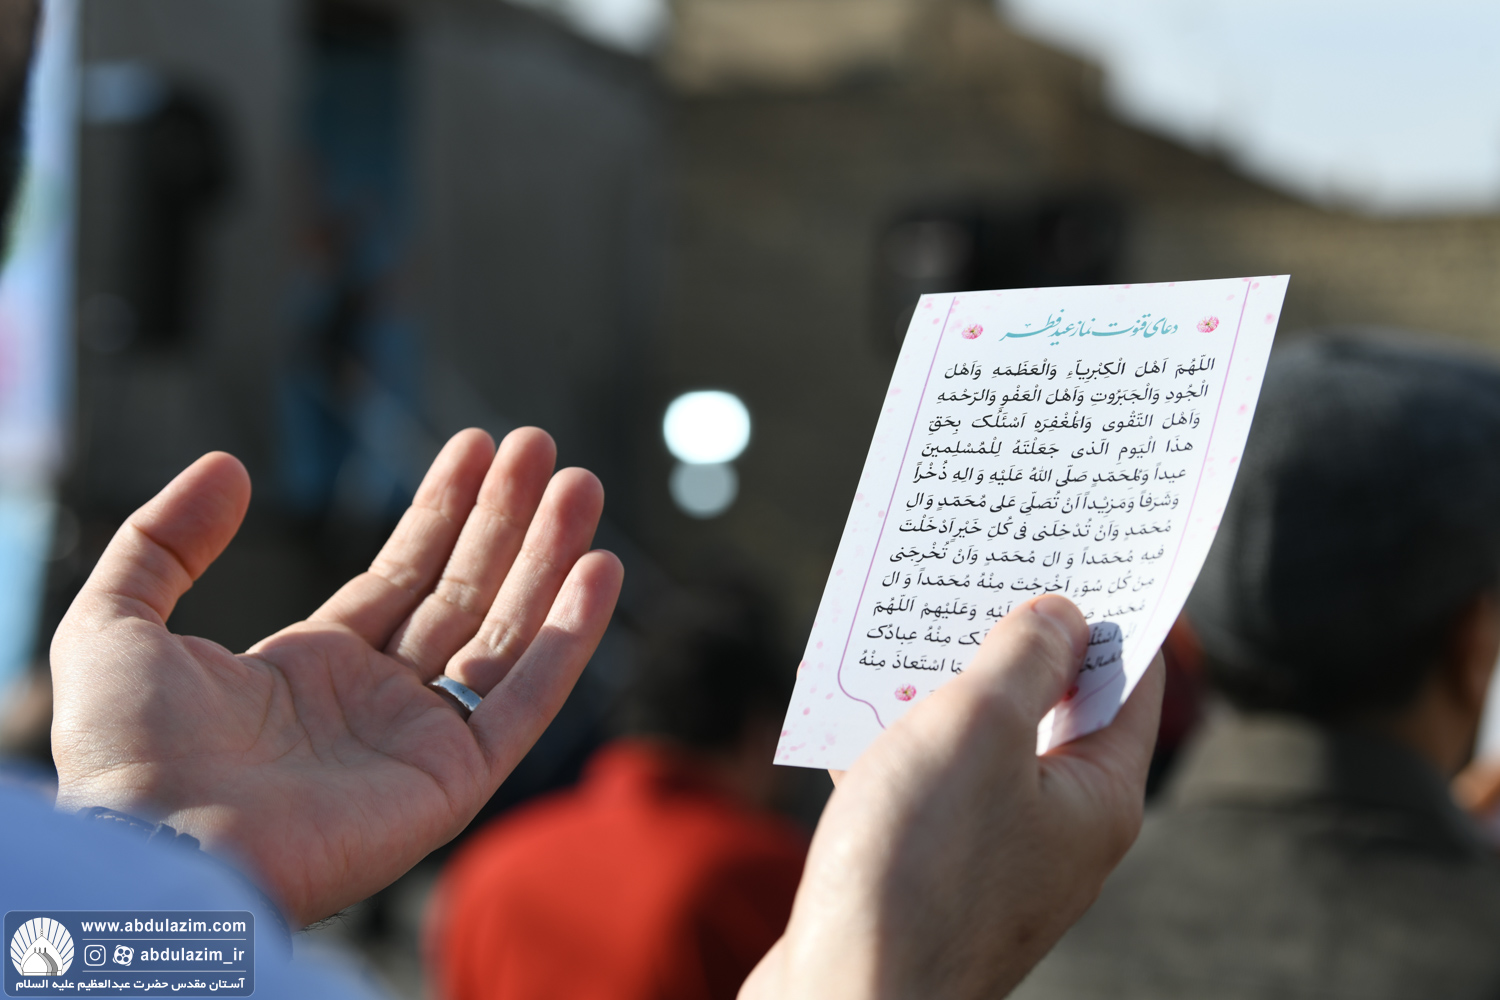 دعای قنوت نماز عید فطر
اللّهُمَّ اَهْلَ الْکِبْرِیآءِ وَالْعَظَمَهِ وَاَهْلَ
الْجُودِ وَالْجَبَرُوتِ وَاَهْلَ الْعَفْوِ وَالرَحْمَهِ
وَاَهْلَ التَّقْوی وَالْمَغْفِرَهِ اَسْئَلُکَ بِحَقِّ
هذَا الْیَومِ الَّذی جَعَلْتَهُ لِلْمُسْلِمینَ
عیداً وَلِمُحَمَّدٍ صَلَّی اللهُ عَلَیْهِ وَ الِهِ ذُخْراً
وَشَرَفاً وَمَزیْداً اَنْ تُصَلِّیَ عَلی مُحَمَّدٍ وَ الِ
مُحَمَّدٍ وَاَنْ تُدْخِلَنی فی کُلِّ خَیْرٍ اَدْخَلْتَ
فیهِ مُحَمَّداً وَ الَ مُحَمَّدٍ وَاَنْ تُخْرِجَنی
مِنْ کُلِّ سُوَءٍ اَخْرَجْتَ مِنْهُ مُحَمَّداً وَ الَ
مُحَمَّدٍ وَعَلَیْهِمْ اَللّهُمَّ
مِنْهُ عِبادُکَ
اسْتَعاذَ مِنْهُ
www.abdulazim.com
abdulazim_ir
آستان مقدس حضرت عبدالعظیم علیه السلام